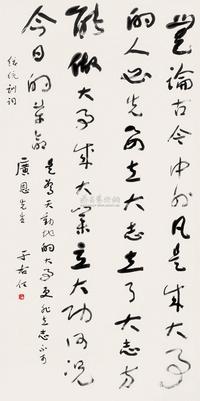 岂论古今中外凡是成大事
的人必先要立大志立了大志方
能做大事成大业立大功何况
今日的革命
是惊天动地的大事更非立志不可
总统训词
广恩先生
于右任